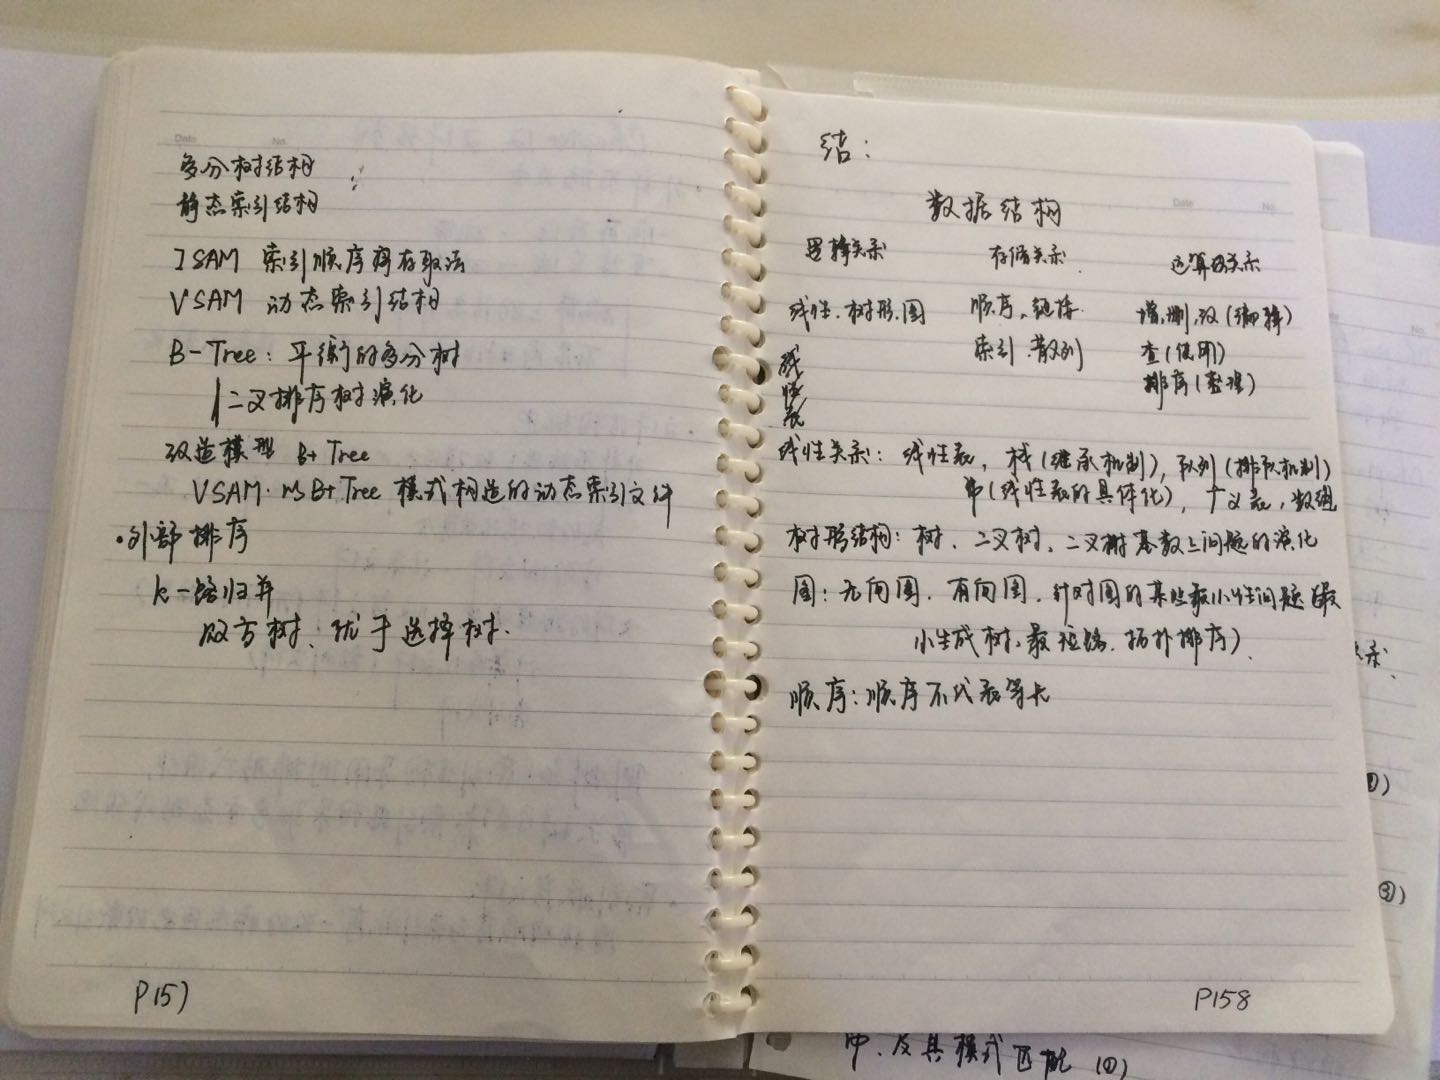 多分树结构
静态索引结构
ISAM 索引顺序存取法
VSAM 动态索引结构
B-Tree：平衡的多分树
二叉排序树演化
改造模型 B+ Tree
VSAM. 以B+Tree 模式构造的动态索引文件
·外部排序
k-路归并
败方树、优于选择树.
P157
结：
Date No.
数据结构
逻辑关系 存储关系 运算关系
线性、树形、图 顺序、链接. 增,删,改(编辑)
索引、散列 查(使用)
排序(整理)
线性表
线性关系：线性表, 栈(继承机制), 队列(排队机制)
串(线性表的具体化), 广义表, 数组
树形结构：树、二叉树、二叉树基数上问题的演化
图：无向图、有向图、针对图的某些最小性问题(最
小生成树、最短路、拓扑排序)
顺序：顺序不代表等长
P158
串、及其模式匹配 (1)